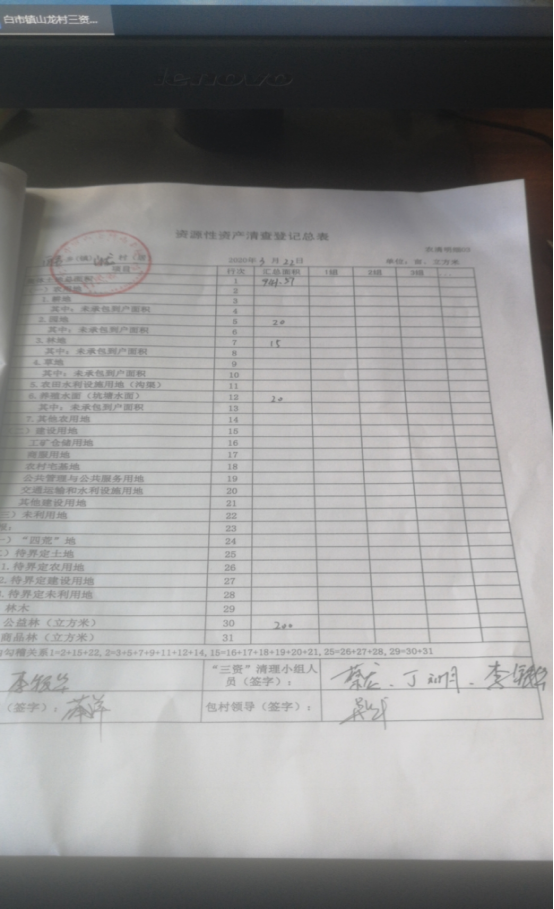 白市镇山龙村三资...
lenovo
资源性资产清查登记总表
2020年 月22日 单位:亩、立方米
项目 行次 汇总面积 1组 2组 3组 ...
总面积 1 941.37
农用地 2
1.耕地 3
其中:未承包到户面积 4
2.园地 5 20
其中:未承包到户面积 6
3.林地 7 15
其中:未承包到户面积 8
4.草地 9
其中:未承包到户面积 10
5.农田水利设施用地(沟渠) 11
6.养殖水面(坑塘水面) 12 20
其中:未承包到户面积 13
7.其他农用地 14
)建设用地 15
工矿仓储用地 16
商服用地 17
农村宅基地 18
公共管理与公共服务用地 19
交通运输和水利设施用地 20
其他建设用地 21
三)未利用地 22
23
)“四荒”地 24
)待界定土地 25
1.待界定农用地 26
2.待界定建设用地 27
.待界定未利用地 28
林木 29
公益林(立方米) 30 200
商品林(立方米) 31
勾稽关系1=2+15+22,2=3+5+7+9+11+12+14,15=16+17+18+19+20+21,25=26+27+28,29=30+31
“三资”清理小组人员(签字):
(签字): 包村领导(签字):